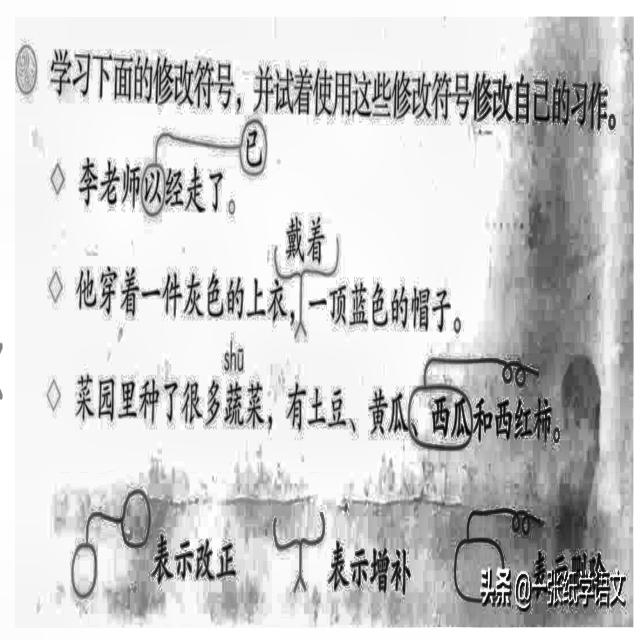 学习下面的修改符号，并试着使用这些修改符号修改自己的习作。
已
李老师以经走了。
戴着
他穿着一件灰色的上衣，一顶蓝色的帽子。
shū
菜园里种了很多蔬菜，有土豆、黄瓜、西瓜和西红柿。
表示改正 表示增补 表示删除
头条 @一张纸学语文